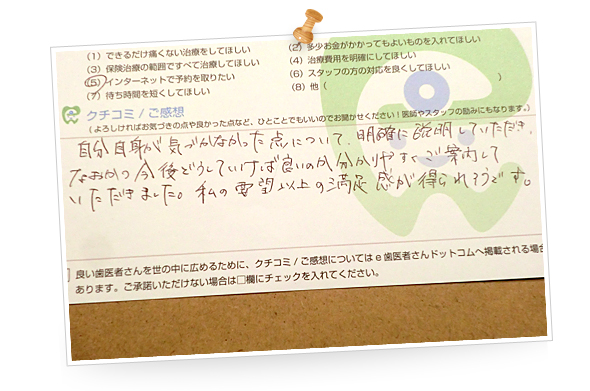 (1) できるだけ痛くない治療をしてほしい
(2) 多少お金がかかってもよいものを入れてほしい
(3) 保険治療の範囲ですべて治療してほしい
(4) 治療費用を明確にしてほしい
(5) インターネットで予約を取りたい
(6) スタッフの方の対応を良くしてほしい
(7) 待ち時間を短くしてほしい
(8) 他 ( )
クチコミ / ご感想
(よろしければお気づきの点や良かった点など、ひとことでもいいのでお聞かせください!医師やスタッフの励みにもなります。)
自分自身が気づかなかった点について、明確に説明していただき、
なおかつ今後どうしていけば良いのか分かりやすくご案内して
いただきました。私の要望以上の満足感が得られそうです。
良い歯医者さんを世の中に広めるために、クチコミ / ご感想については e 歯医者さんドットコムへ掲載される場合
あります。ご承諾いただけない場合は□欄にチェックを入れてください。